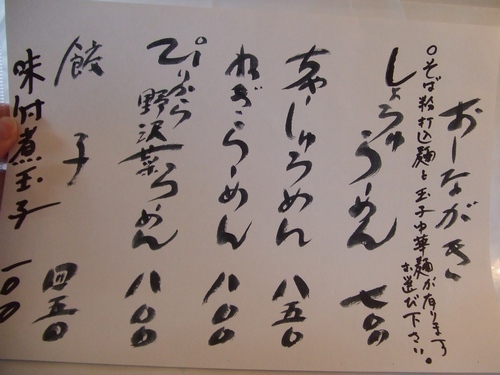 おーしながき
○そば粉打込麺と玉子中華麺が有ります
お選び下さい。
しょうゆらーめん 七〇〇
ちゃーしゅうめん 八五〇
ねぎらーめん 八〇〇
ぴりから野沢菜らーめん 八〇〇
餃子 四五〇
味付煮玉子 一〇〇